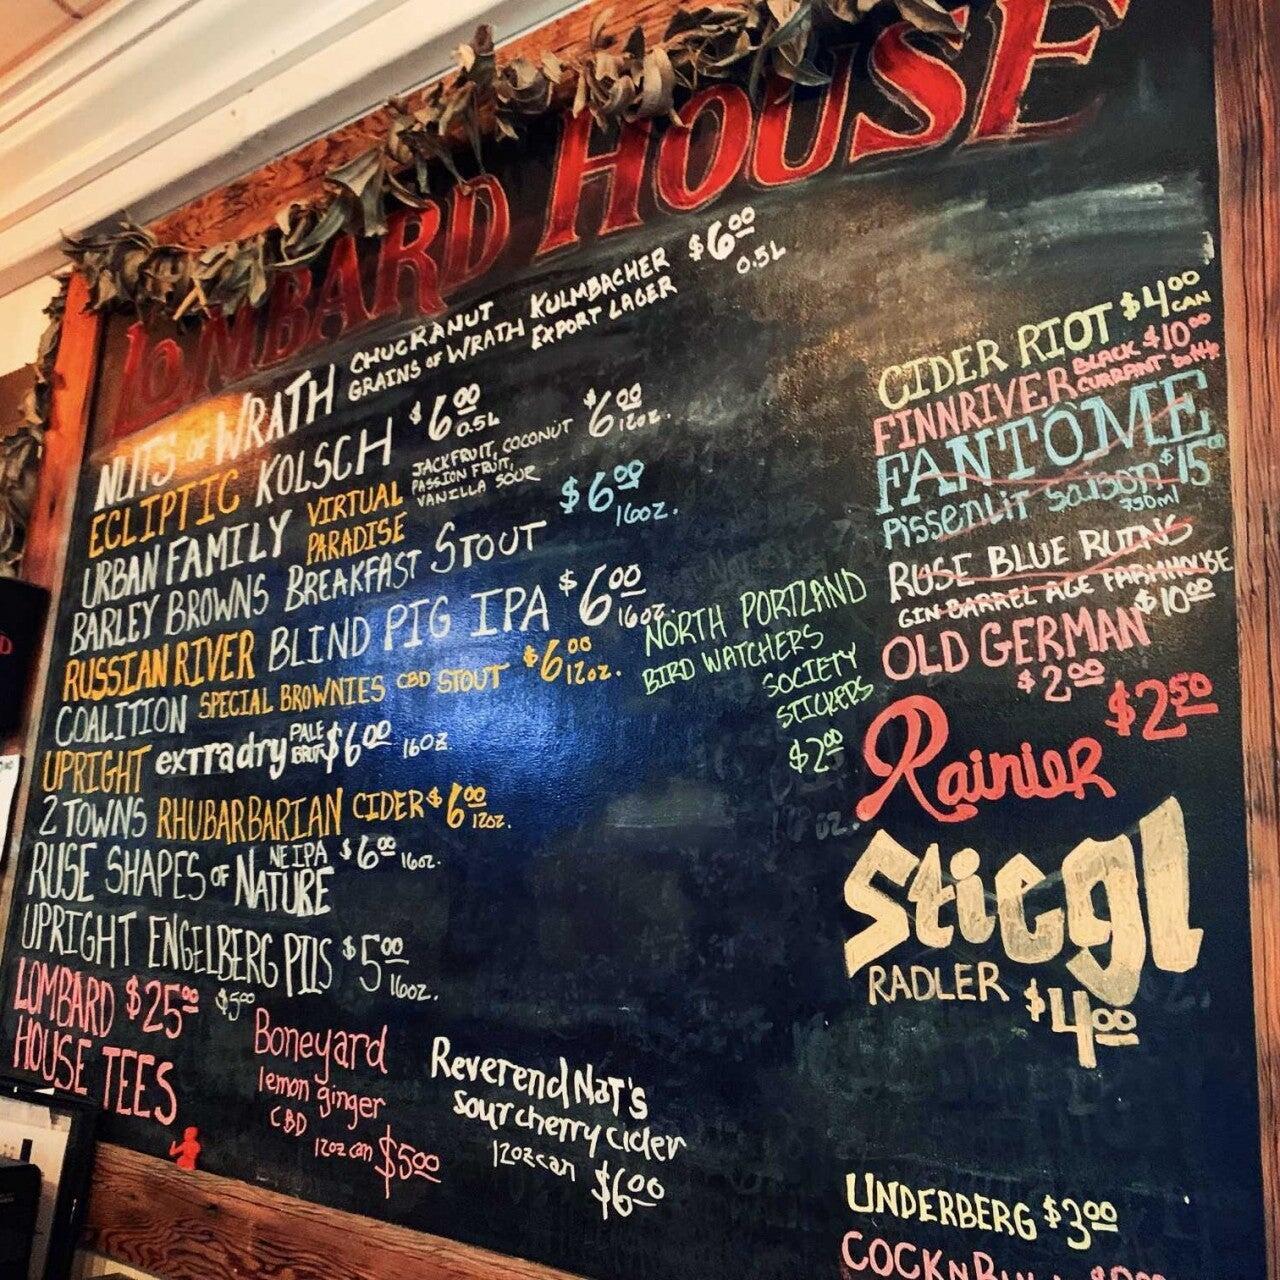 LOMBARD HOUSE
NUTS OF WRATH CHUCKANUT GRAINS OF WRATH KULMBACHER EXPORT LAGER $6.00 0.5L
ECLIPTIC KOLSCH $6.00 0.5L
URBAN FAMILY VIRTUAL PARADISE JACKFRUIT, COCONUT PASSION FRUIT, VANILLA SOUR $6.00 12oz.
BARLEY BROWNS BREAKFAST STOUT $6.00 16oz.
RUSSIAN RIVER BLIND PIG IPA $6.00 16oz.
COALITION SPECIAL BROWNIES CBD STOUT $6.00 12oz.
UPRIGHT extra dry PALE BRUT $6.00 16oz.
2 TOWNS RHUBARBARIAN CIDER $6.00 12oz.
RUSE SHAPES OF NATURE NEIPA $6.00 16oz.
UPRIGHT ENGELBERG PILS $5.00 16oz.
LOMBARD $25.00
HOUSE TEES
$5.00
Boneyard
lemon ginger
CBD
12oz can $5.00
Reverend Nat's
sour cherry cider
12oz can $6.00
NORTH PORTLAND
BIRD WATCHERS
SOCIETY
STICKERS
$2.00
CIDER RIOT $4.00 CAN
FINNRIVER BLACK CURRANT $10.00 bottle
FANTÔME
Pissenlit Saison $15.00
750ml
RUSE BLUE RUINS
GIN BARREL AGE FARMHOUSE
$10.00
OLD GERMAN
$2.00
Rainier $2.50
Stiegl
RADLER $4.00
UNDERBERG $3.00
COCKNBULL